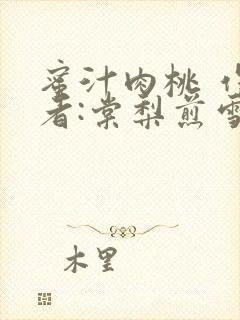 蜜汁肉桃
者:棠梨煎雪
木里